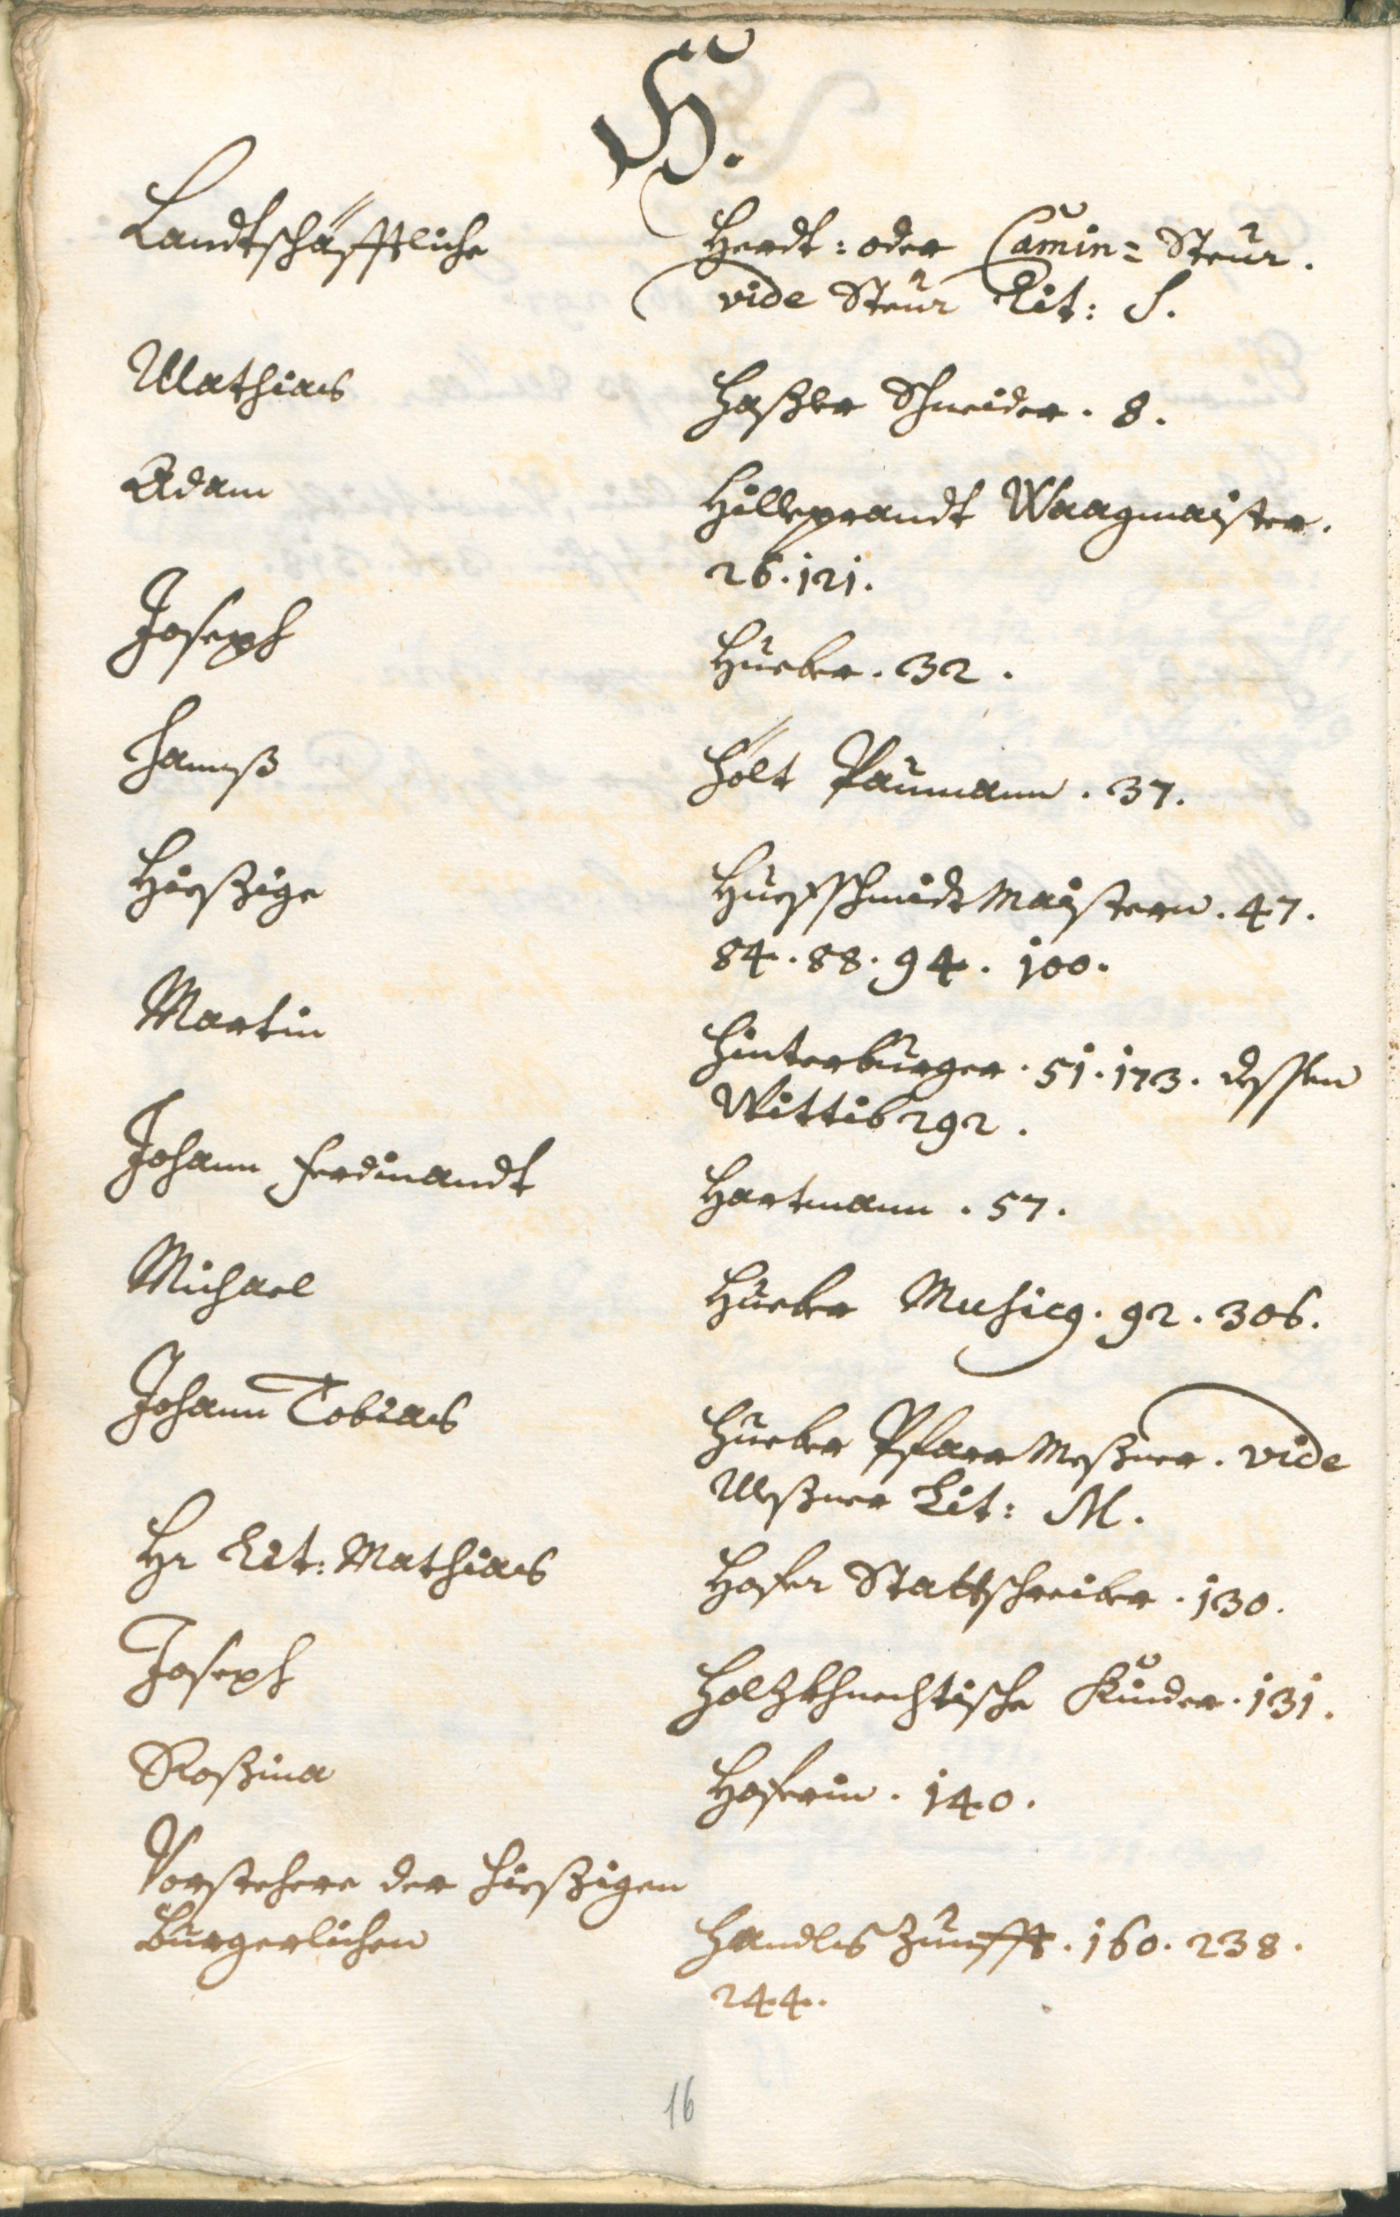 H.
Landtschäfftliche Herdt: oder Camin= Steur.
vide Steur Lit: S.
Mathias Haßler Schneider. 8.
Adam Hilleprandt Waagmaister.
26. 121.
Joseph Hueber. 32.
Hannß Hölt Paumann. 37.
Hießige Huefschmidt Maistern. 47.
84. 88. 94. 100.
Martin Hinterburger. 51. 173. dessen
Wittib 292.
Johann Ferdinandt Hartmann. 57.
Michael Hueber Musicq. 92. 306.
Johann Tobias Hueber Pfarr Meßner. vide
Meßner Lit: M.
Hr Lit: Mathias Hofer Stattschreiber. 130.
Joseph Holzkhnechtische Kinder. 131.
Roßina Hoferin. 140.
Vorstehere der hießigen
Burgerlichen Handls Zunfft. 160. 238.
244.
16